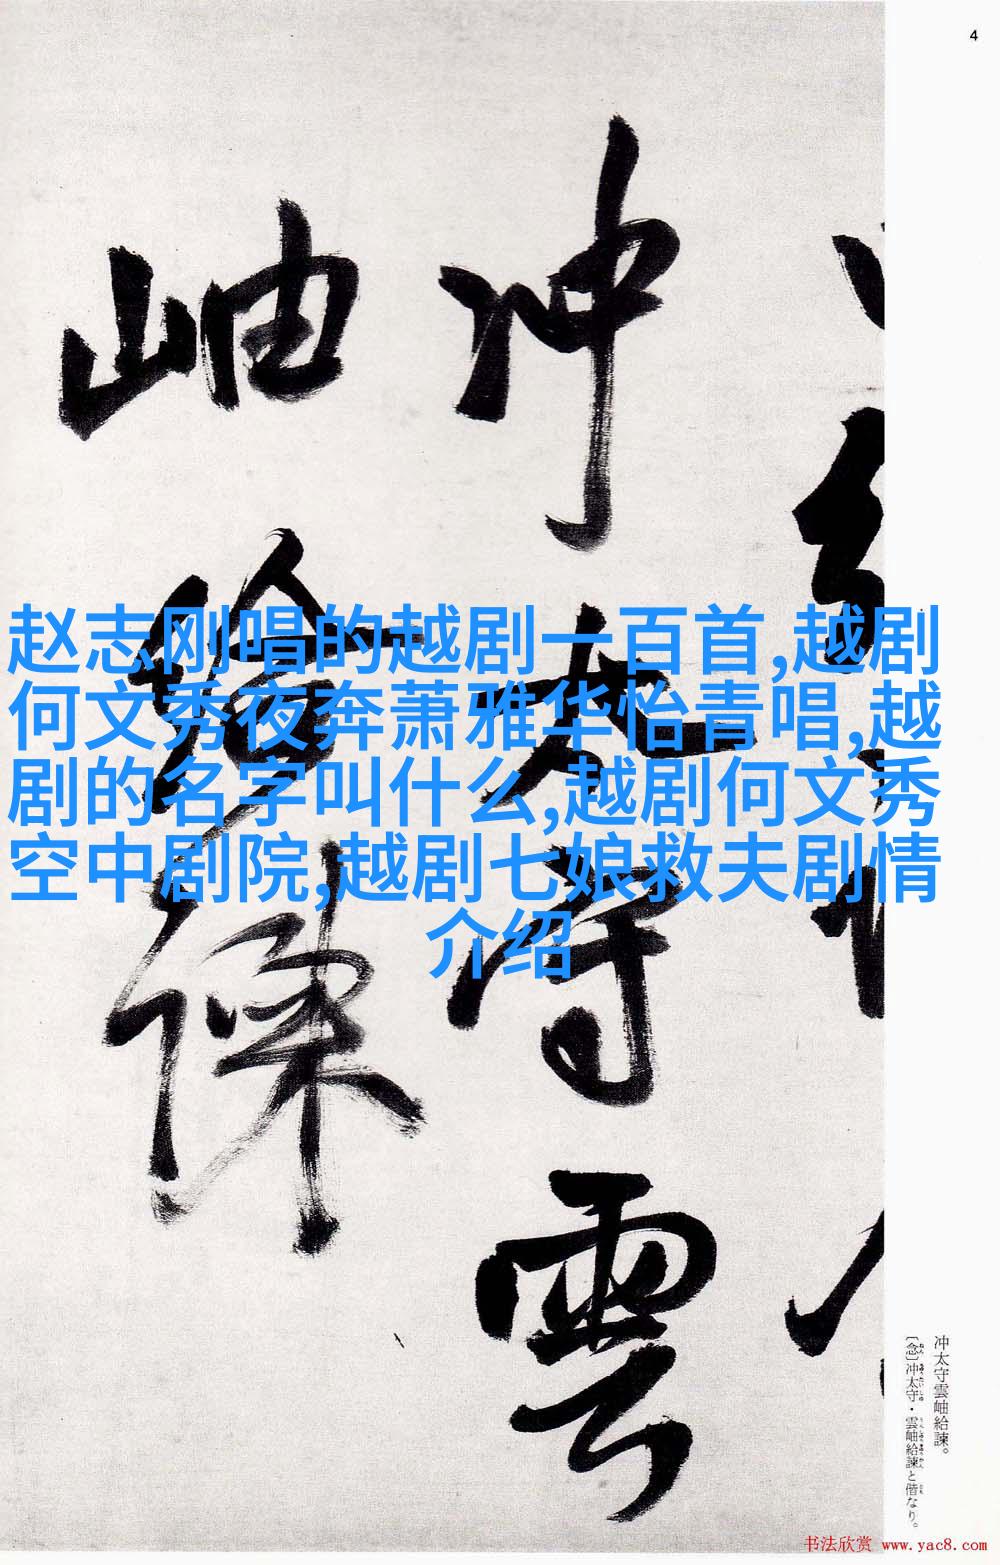 4
冲太守雲
岫給諫
赵志刚唱的越剧一百首,越剧
何文秀夜奔萧雅华怡青唱,越
剧的名字叫什么,越剧何文秀
空中剧院,越剧七娘救夫剧情
介绍
冲太守雲岫給諫。
〔念〕冲太守・雲岫給諫と偕なり。
书法欣赏 www.yac8.com